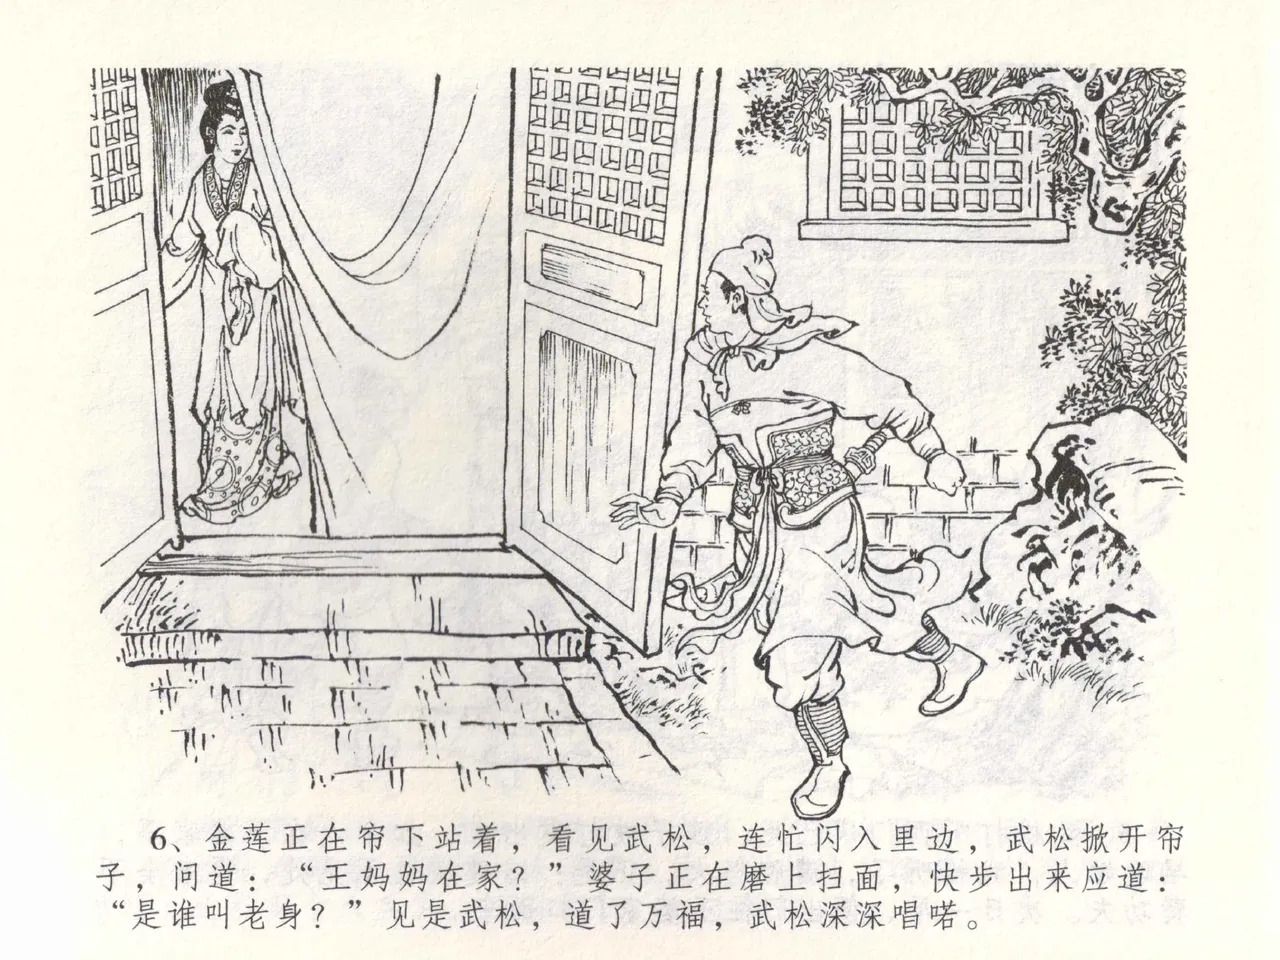 6、金莲正在帘下站着，看见武松，连忙闪入里边，武松掀开帘
子，问道：“王妈妈在家？”婆子正在磨上扫面，快步出来应道：
“是谁叫老身？”见是武松，道了万福，武松深深唱喏。